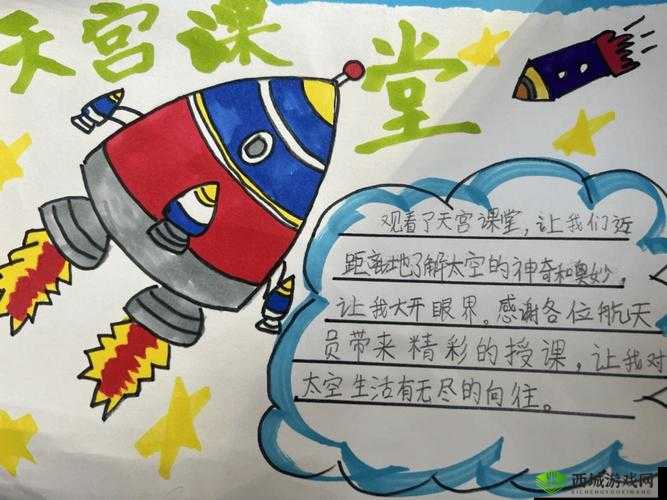 天宫课堂
观看了天宫课堂，让我们近
距离地了解太空的神奇和奥妙，
让我大开眼界。感谢各位航天
员带来精彩的授课，让我对
太空生活有无尽的向往。
西城游戏网
XICHENGYOUXIWANG